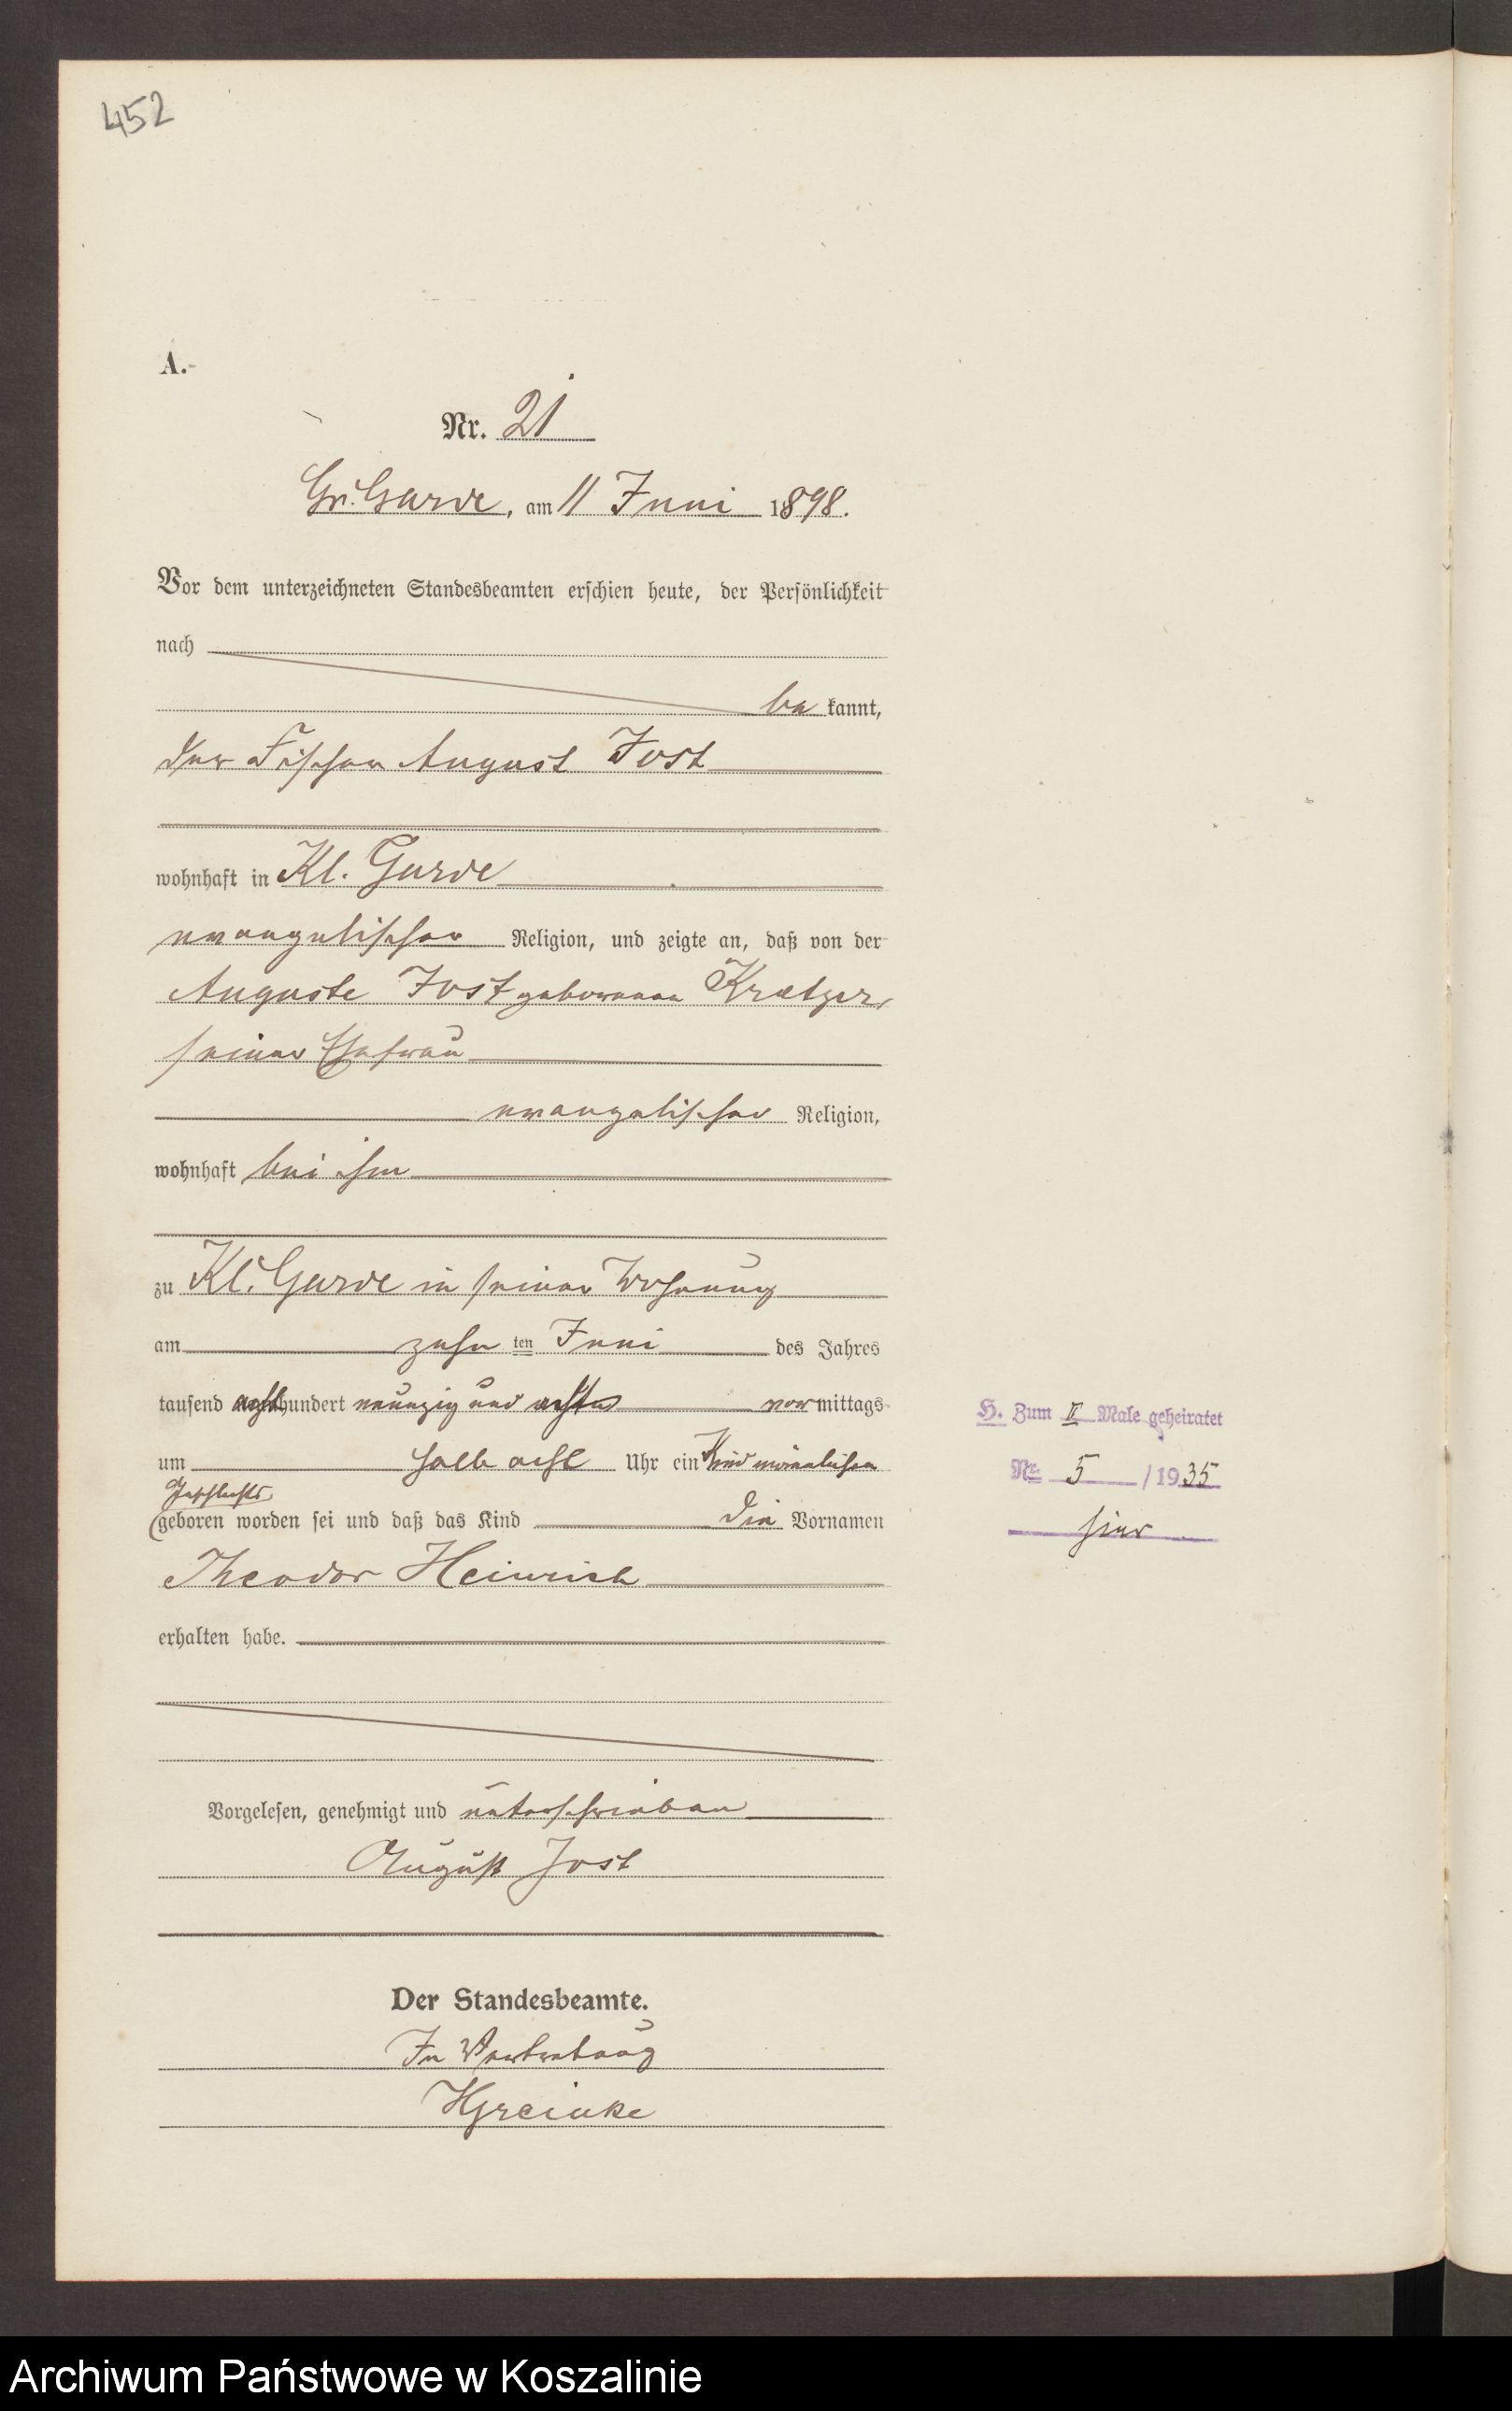 452
A.
Nr. 21
Gr. Garde, am 11 Juni 1898.
Vor dem unterzeichneten Standesbeamten erschien heute, der Persönlichkeit
nach
be kannt,
der Fischer August Jost
wohnhaft in Kl. Garde
evangelischer Religion, und zeigte an, daß von der
Auguste Jost geborenen Kraetzer,
seiner Ehefrau
evangelischer Religion,
wohnhaft bei ihm
zu Kl. Garde in seiner Wohnung
am zehn ten Juni des Jahres
tausend achthundert neunzig und acht vormittags
um halb acht Uhr ein Kind männlichen
Geschlechts
geboren worden sei und daß das Kind die Vornamen
Theodor Heinrich
erhalten habe.
Vorgelesen, genehmigt und unterschrieben
August Jost
Der Standesbeamte.
In Vertretung
HGreinke
H. Zum II Male geheiratet
Nr. 5 / 1935
hier
Archiwum Państwowe w Koszalinie